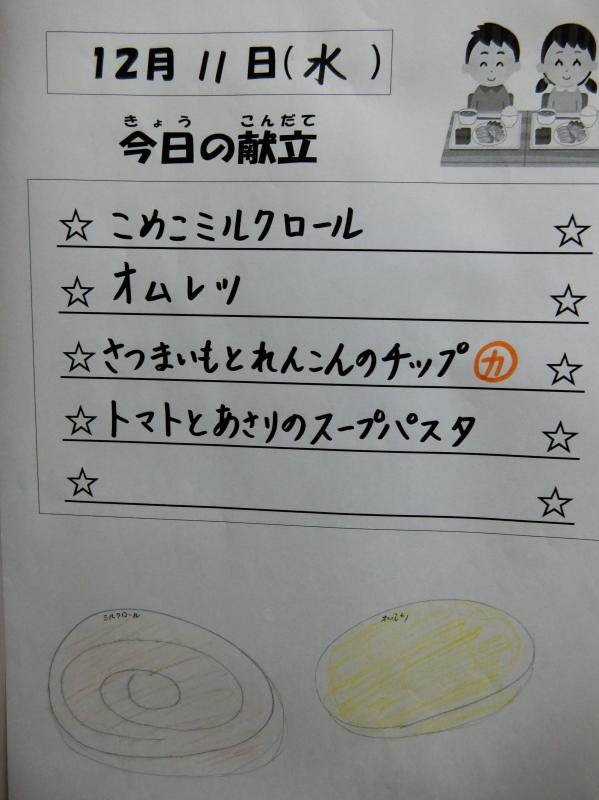 12月 11 日(水)
きょう こんだて
今日の献立
☆ こめこミルクロール ☆
☆ オムレツ ☆
☆ さつまいもとれんこんのチップ ㋕ ☆
☆ トマトとあさりのスープパスタ ☆
☆ ☆
ミルクロール オムレツ